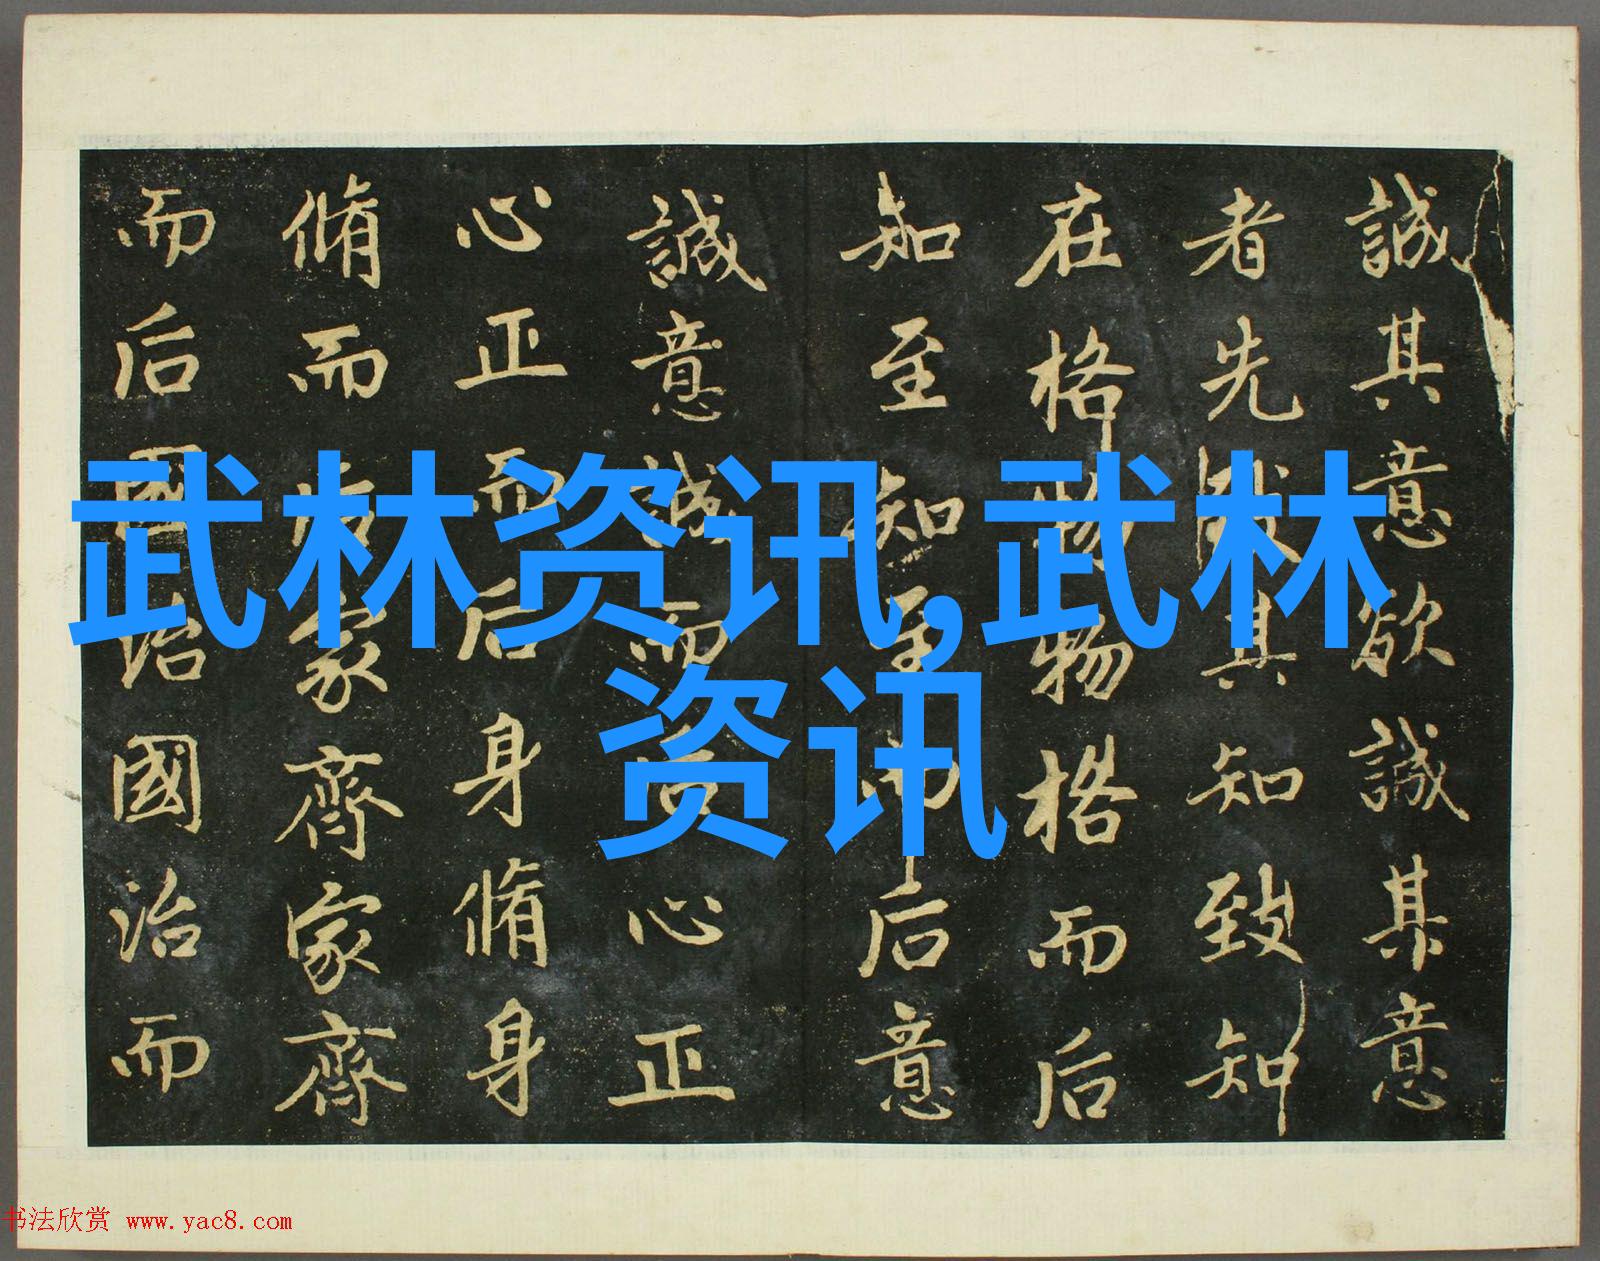 誠其意欲誠其意
者先致其知致知
在格物物格而后
知至知至而后意
誠意誠而后心正
心正而后身脩身
脩而后家齊家齊
而后國治國治而
武林资讯,武林
资讯
书法欣赏 www.yac8.com